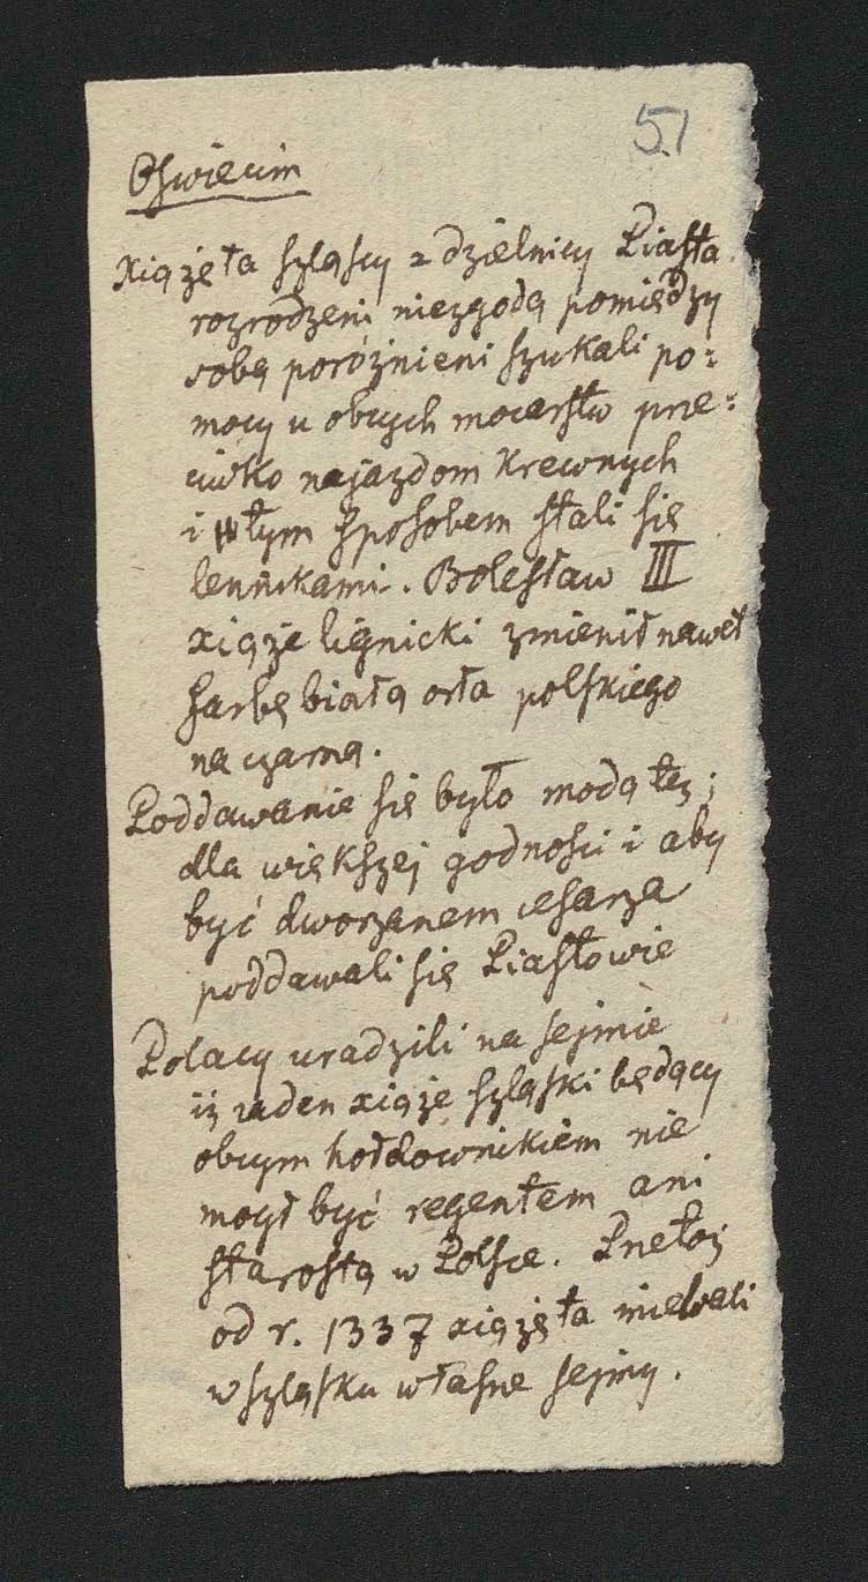 51
Oswiecim
xiążęta szląscy z dzielnicy Piasta
rozrodzeni niezgodą pomiędzy
sobą poróżnieni szukali po:
mocy u obcych mocarstw prze:
ciwko najazdom krewnych
i tym sposobem stali się
lennikami. Bolesław III
xiąże lignicki zmienił nawet
farbę białą orła polskiego
na czarną.
Poddawanie się było modą też;
dla większej godności i aby
być dworzanem cesarza
poddawali się Piastowie
Polacy uradzili na sejmie
iż żaden xiąże szląski będący
obcym hołdownikiem nie
mógł być regentem ani
starostą w Polsce. Przetoż
od r. 1337 xiążęta miewali
w szląsku własne sejmy.